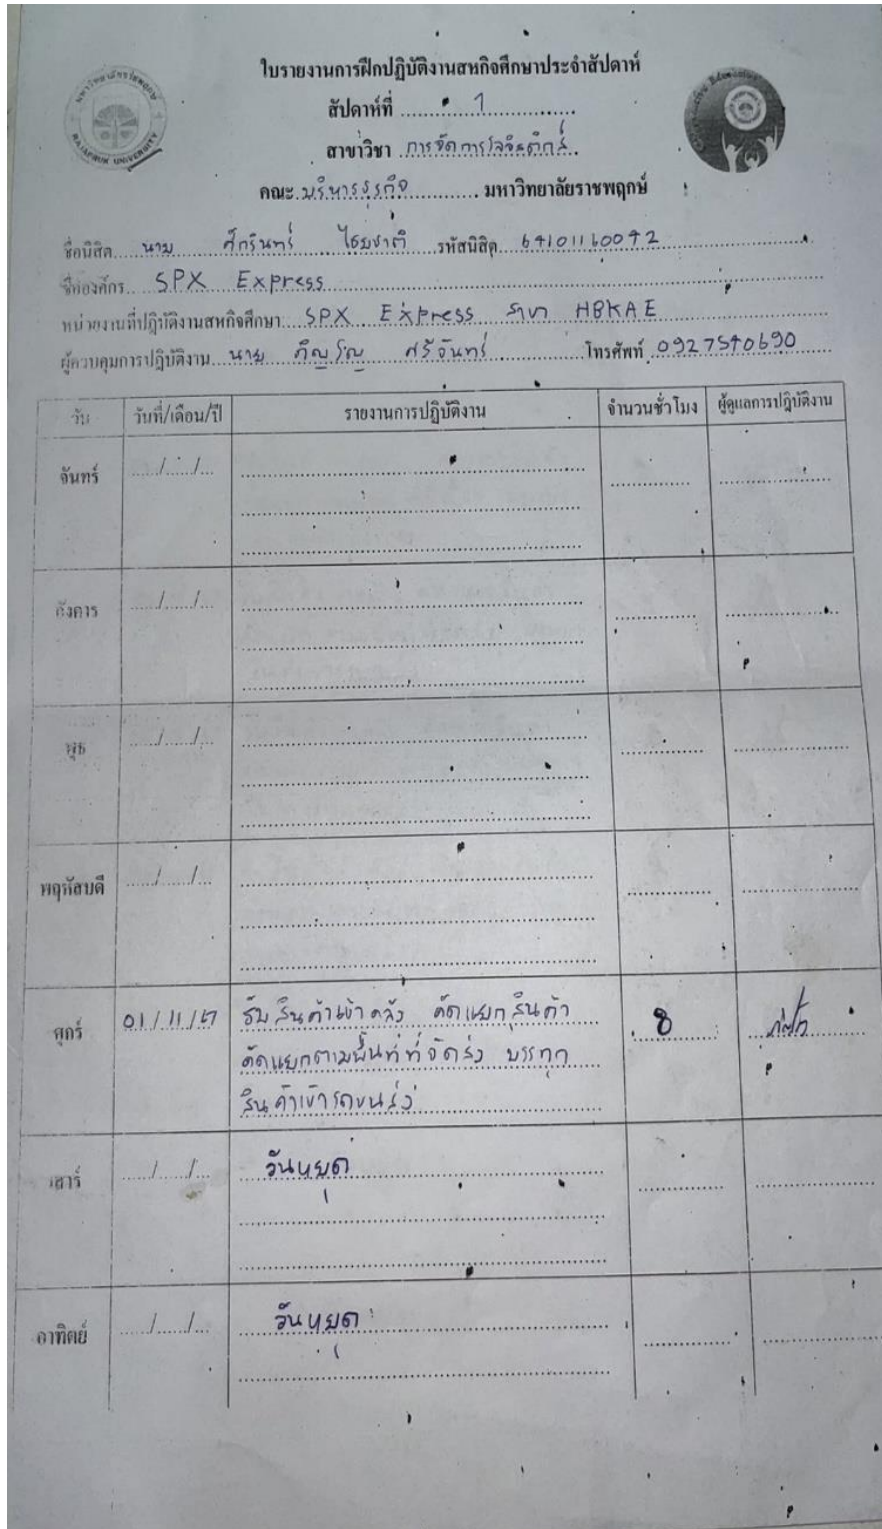 ใบรายงานการฝึกปฏิบัติงานสหกิจศึกษาประจำสัปดาห์
สัปดาห์ที่ 1
สาขาวิชา การจัดการโลจิสติกส์
คณะ บริหารธุรกิจ มหาวิทยาลัยราชพฤกษ์
RAJAPRUK UNIVERSITY
ชื่อนิสิต นาย ศักรินทร์ ไชยชาติ รหัสนิสิต
ชื่อองค์กร SPX Express
หน่วยงานที่ปฏิบัติงานสหกิจศึกษา SPX Express สาขา HBKAE
ผู้ควบคุมการปฏิบัติงาน นาย ศรีจันทร์ โทรศัพท์ 0927540690
วัน วันที่/เดือน/ปี รายงานการปฏิบัติงาน จำนวนชั่วโมง ผู้ดูแลการปฏิบัติงาน
จันทร์ / /
อังคาร / /
พุธ / /
พฤหัสบดี / /
ศุกร์ 01/11/67 รับสินค้าเข้าคลัง คัดแยกสินค้า 8
คัดแยกตามพื้นที่ที่จัดส่ง บรรทุก
สินค้าเข้ารถขนส่ง
เสาร์ / / วันหยุด
อาทิตย์ / / วันหยุด